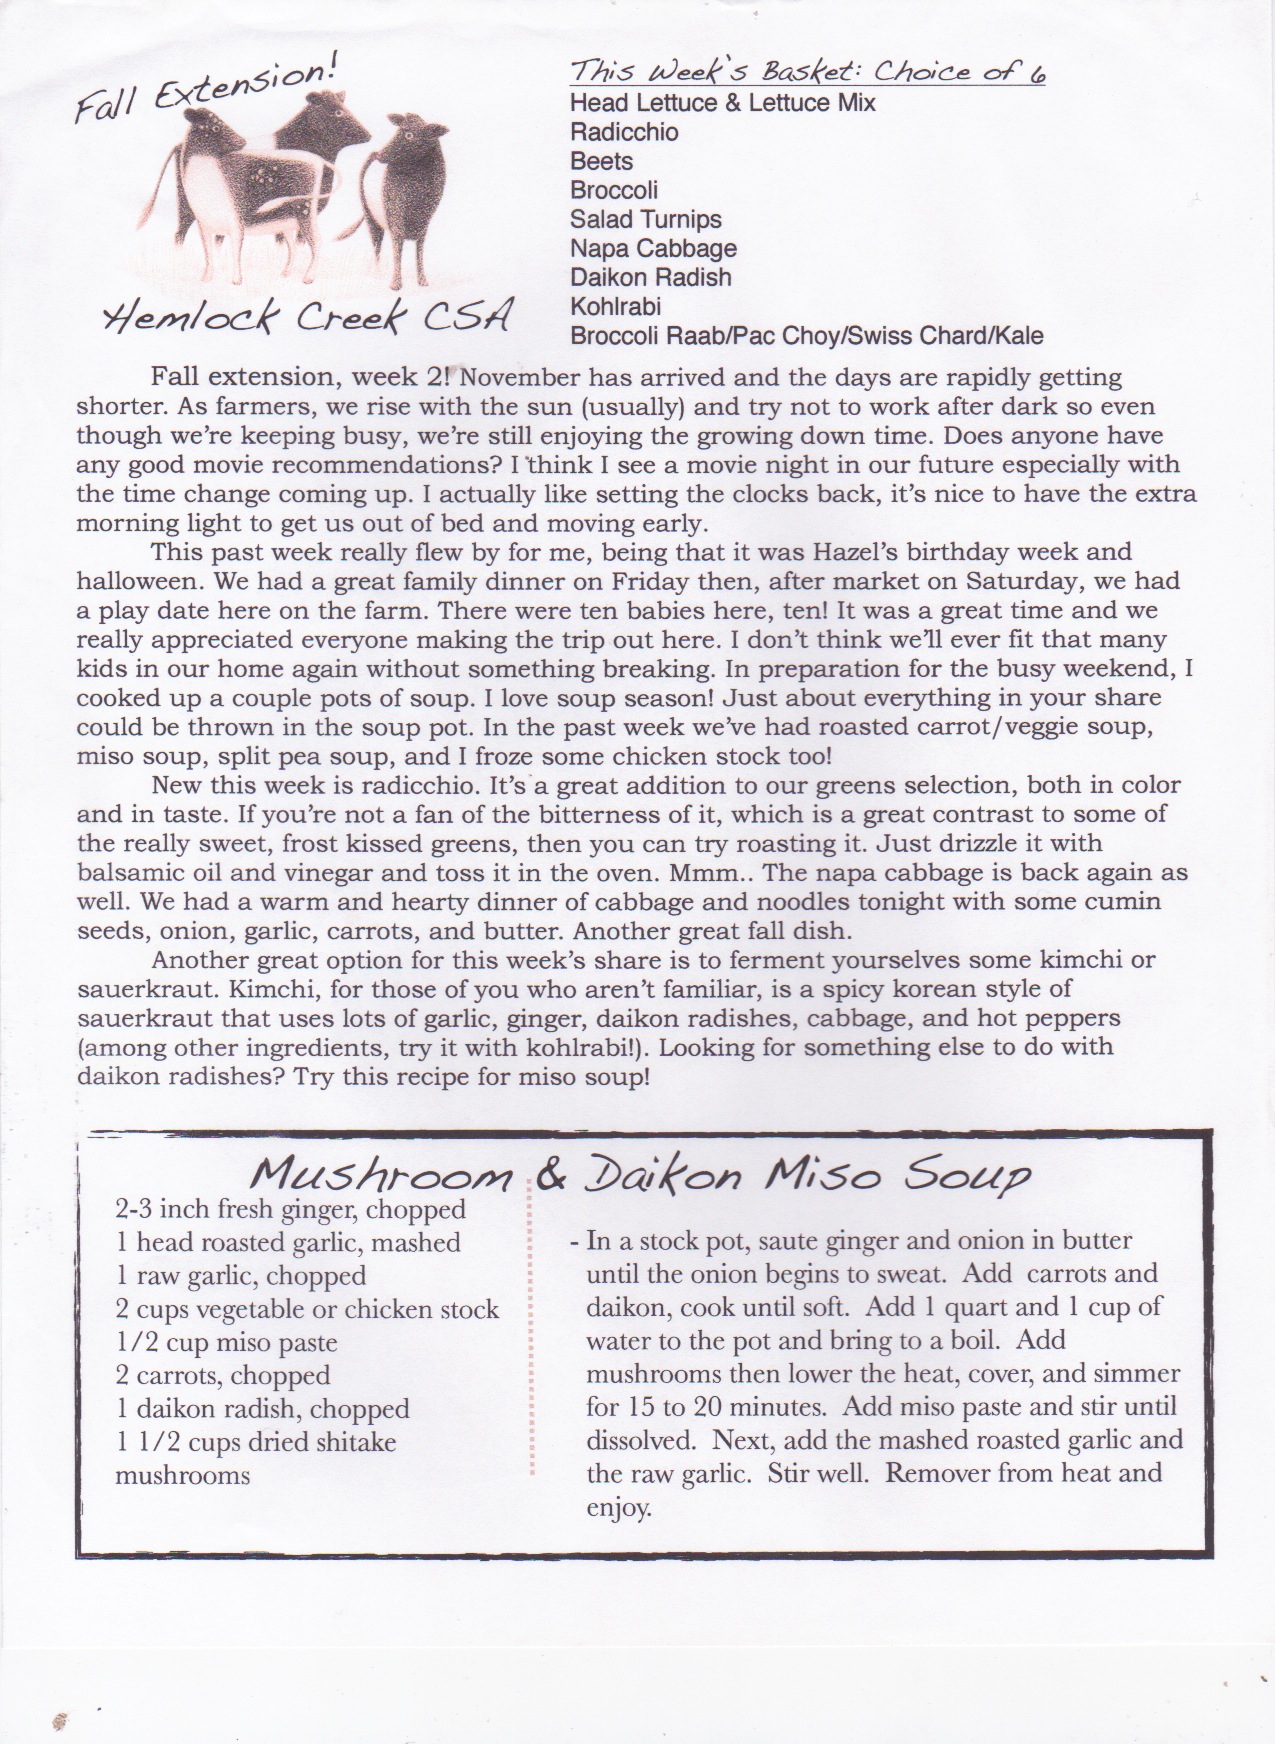 Fall Extension!
Hemlock Creek CSA
This Week's Basket: Choice of 6
Head Lettuce & Lettuce Mix
Radicchio
Beets
Broccoli
Salad Turnips
Napa Cabbage
Daikon Radish
Kohlrabi
Broccoli Raab/Pac Choy/Swiss Chard/Kale
Fall extension, week 2! November has arrived and the days are rapidly getting
shorter. As farmers, we rise with the sun (usually) and try not to work after dark so even
though we're keeping busy, we're still enjoying the growing down time. Does anyone have
any good movie recommendations? I think I see a movie night in our future especially with
the time change coming up. I actually like setting the clocks back, it's nice to have the extra
morning light to get us out of bed and moving early.
This past week really flew by for me, being that it was Hazel's birthday week and
halloween. We had a great family dinner on Friday then, after market on Saturday, we had
a play date here on the farm. There were ten babies here, ten! It was a great time and we
really appreciated everyone making the trip out here. I don't think we'll ever fit that many
kids in our home again without something breaking. In preparation for the busy weekend, I
cooked up a couple pots of soup. I love soup season! Just about everything in your share
could be thrown in the soup pot. In the past week we've had roasted carrot/veggie soup,
miso soup, split pea soup, and I froze some chicken stock too!
New this week is radicchio. It's a great addition to our greens selection, both in color
and in taste. If you're not a fan of the bitterness of it, which is a great contrast to some of
the really sweet, frost kissed greens, then you can try roasting it. Just drizzle it with
balsamic oil and vinegar and toss it in the oven. Mmm.. The napa cabbage is back again as
well. We had a warm and hearty dinner of cabbage and noodles tonight with some cumin
seeds, onion, garlic, carrots, and butter. Another great fall dish.
Another great option for this week's share is to ferment yourselves some kimchi or
sauerkraut. Kimchi, for those of you who aren't familiar, is a spicy korean style of
sauerkraut that uses lots of garlic, ginger, daikon radishes, cabbage, and hot peppers
(among other ingredients, try it with kohlrabi!). Looking for something else to do with
daikon radishes? Try this recipe for miso soup!
Mushroom & Daikon Miso Soup
2-3 inch fresh ginger, chopped
1 head roasted garlic, mashed
1 raw garlic, chopped
2 cups vegetable or chicken stock
1/2 cup miso paste
2 carrots, chopped
1 daikon radish, chopped
1 1/2 cups dried shitake
mushrooms
- In a stock pot, saute ginger and onion in butter
until the onion begins to sweat. Add carrots and
daikon, cook until soft. Add 1 quart and 1 cup of
water to the pot and bring to a boil. Add
mushrooms then lower the heat, cover, and simmer
for 15 to 20 minutes. Add miso paste and stir until
dissolved. Next, add the mashed roasted garlic and
the raw garlic. Stir well. Remover from heat and
enjoy.